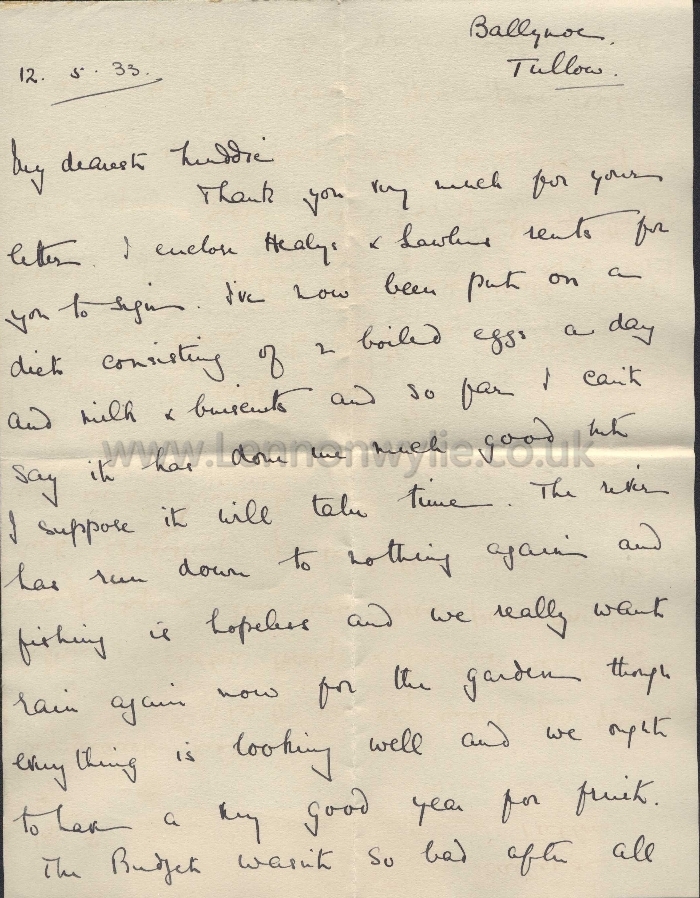 Ballynoe.
Tullow.
12. 5. 33.
My dearest Muddie
Thank you very much for your
letter. I enclose Healys & Lawlers rents for
you to sign. I've now been put on a
diet consisting of 2 boiled eggs a day
and milk & buiscuits and so far I can't
say it has done me much good but
I suppose it will take time. The river
has run down to nothing again and
fishing is hopeless and we really want
rain again now for the garden though
everything is looking well and we ought
to have a very good year for fruit.
The Budget wasn't so bad after all
www.Lennonwylie.co.uk